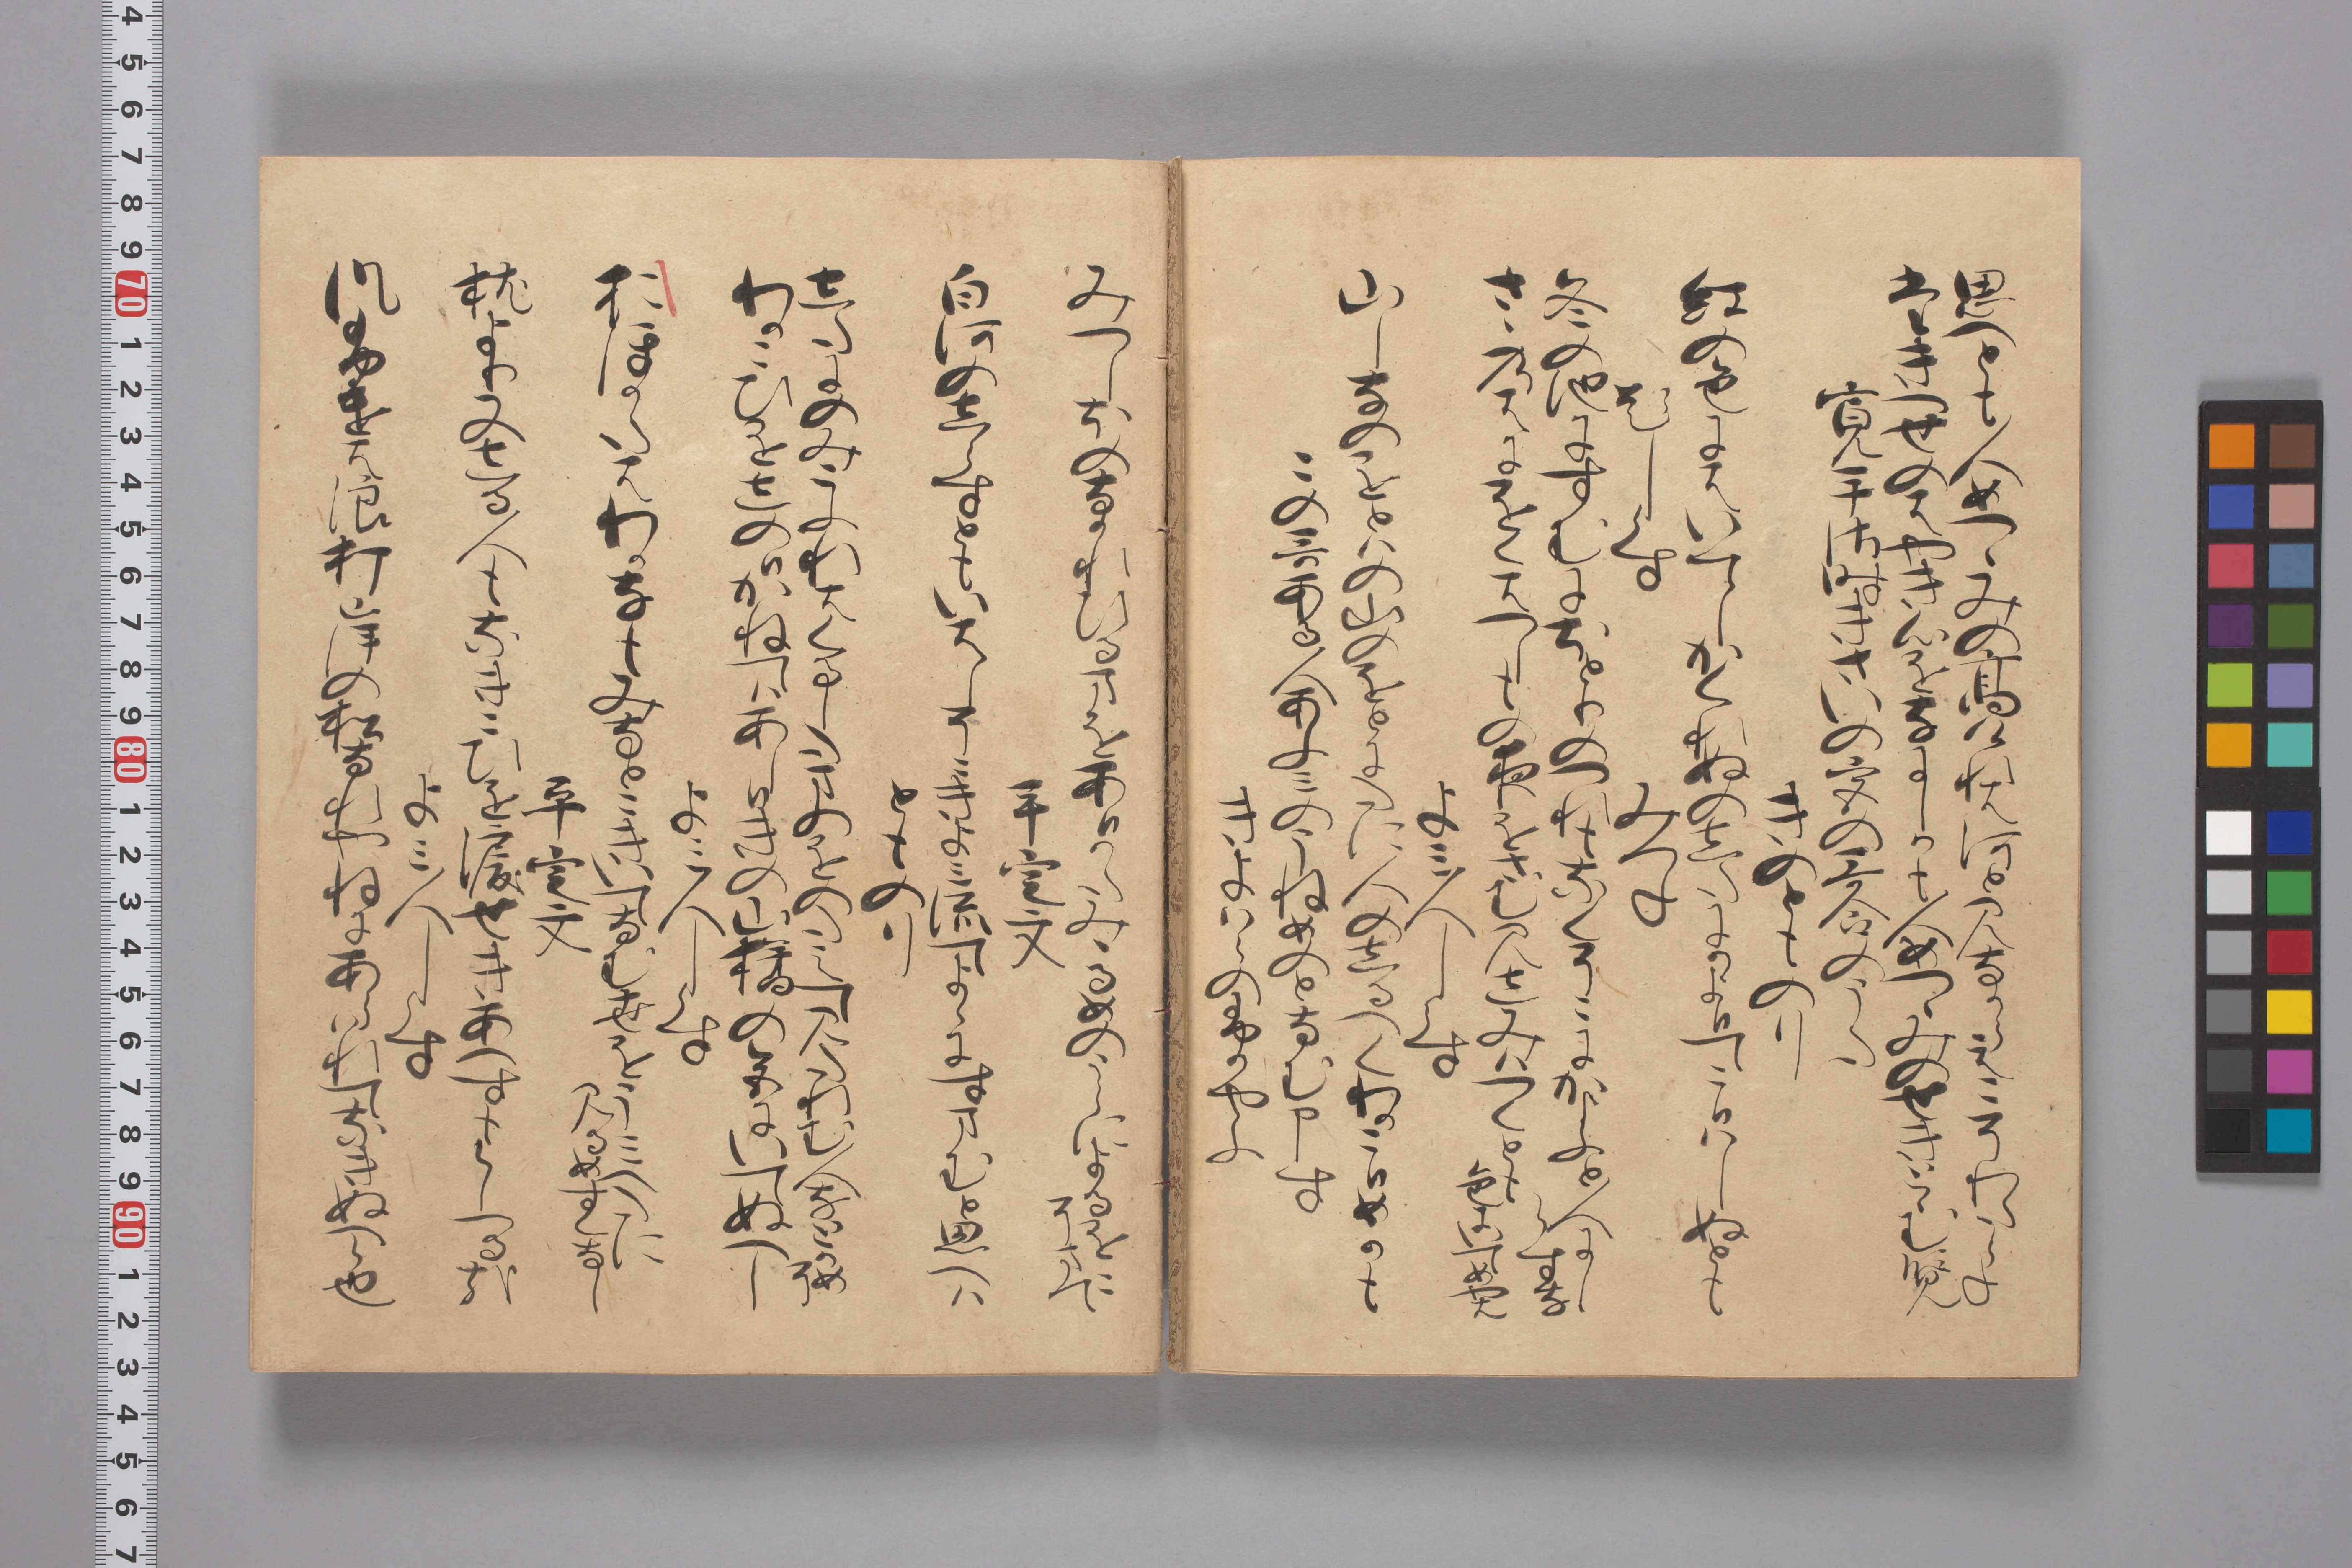 思へとも人めつゝみの高けれは河とみなからえこそわたらね
たきつせのはやき心をなにしかも人めつゝみのせきとゝむ覧
寛平御時きさいの宮の哥合のうた
きのとものり
紅の色にはいてしかくれぬのしたにかよひてこひはしぬとも
題しらす
みつね
冬の池にすむにほとりのつれもなくそこにかよふと人にしらすな
さゝのはにをくはつしもの夜をさむみしみはつくとも色にいてめや
よみ人しらす
山しなのをとはの山のをとにたに人のしるへくわかこひめかも
この哥ある人あふみのうねめのとなん申
きよはらのふかやふ
みつしほのなかれひるまをあひかたみみるめのうらによるをこそまて
平貞文
白河のしらすともいはしそこきよみ流てよゝにすまむと思へは
とものり
したにのみこふれはくるし玉のをのたえてみたれむ人なとかめそ
わかこひをしのひかねてはあしひきの山橘の色にいてぬへし
よみ人しらす
おほかたはわか名もみなとこきいてなむ世をうみへたにみるめすくなし
平貞文
枕より又しる人もなきこひを涙せきあへすもらしつるかな
よみ人しらす
風ふけは浪打岸の松なれやねにあらはれてなきぬへら也